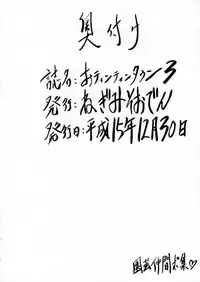 奥付け
誌名:おティンティンタウン3
発行:ねぎみそおでん
発行日:平成15年12月30日
仲間募集♡